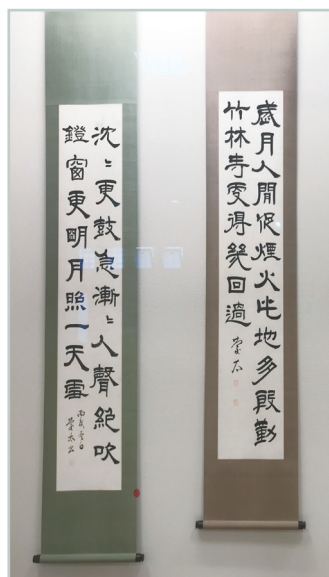 歲月人閒促煙火此地多殷勤
竹林寺更得幾回過
沈〻更鼓急漸〻人聲絕吹
鐙窗更明月照一天雪